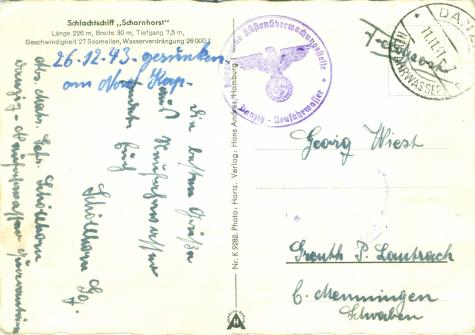 Schlachtschiff „Scharnhorst"
Länge 226 m, Breite 30 m, Tiefgang 7,5 m,
Geschwindigkeit 27 Seemeilen, Wasserverdrängung 26000 t
26.12.43 gesunken
am Nord Kap
Die besten Grüße
aus Neufahrwasser
Euch
Schöllhorn
Schöllhorn
Danzig - Neufahrwasser
Nr. K 9282. Photo: Hartz. Verlag: Hans Andres, Hamburg
Küstenüberwachungsstelle
Danzig - Neufahrwasser
Feldpost
DANZIG
11.12.
Georg Wiest
Greuth P. Lautrach
b. Memmingen
Schwaben